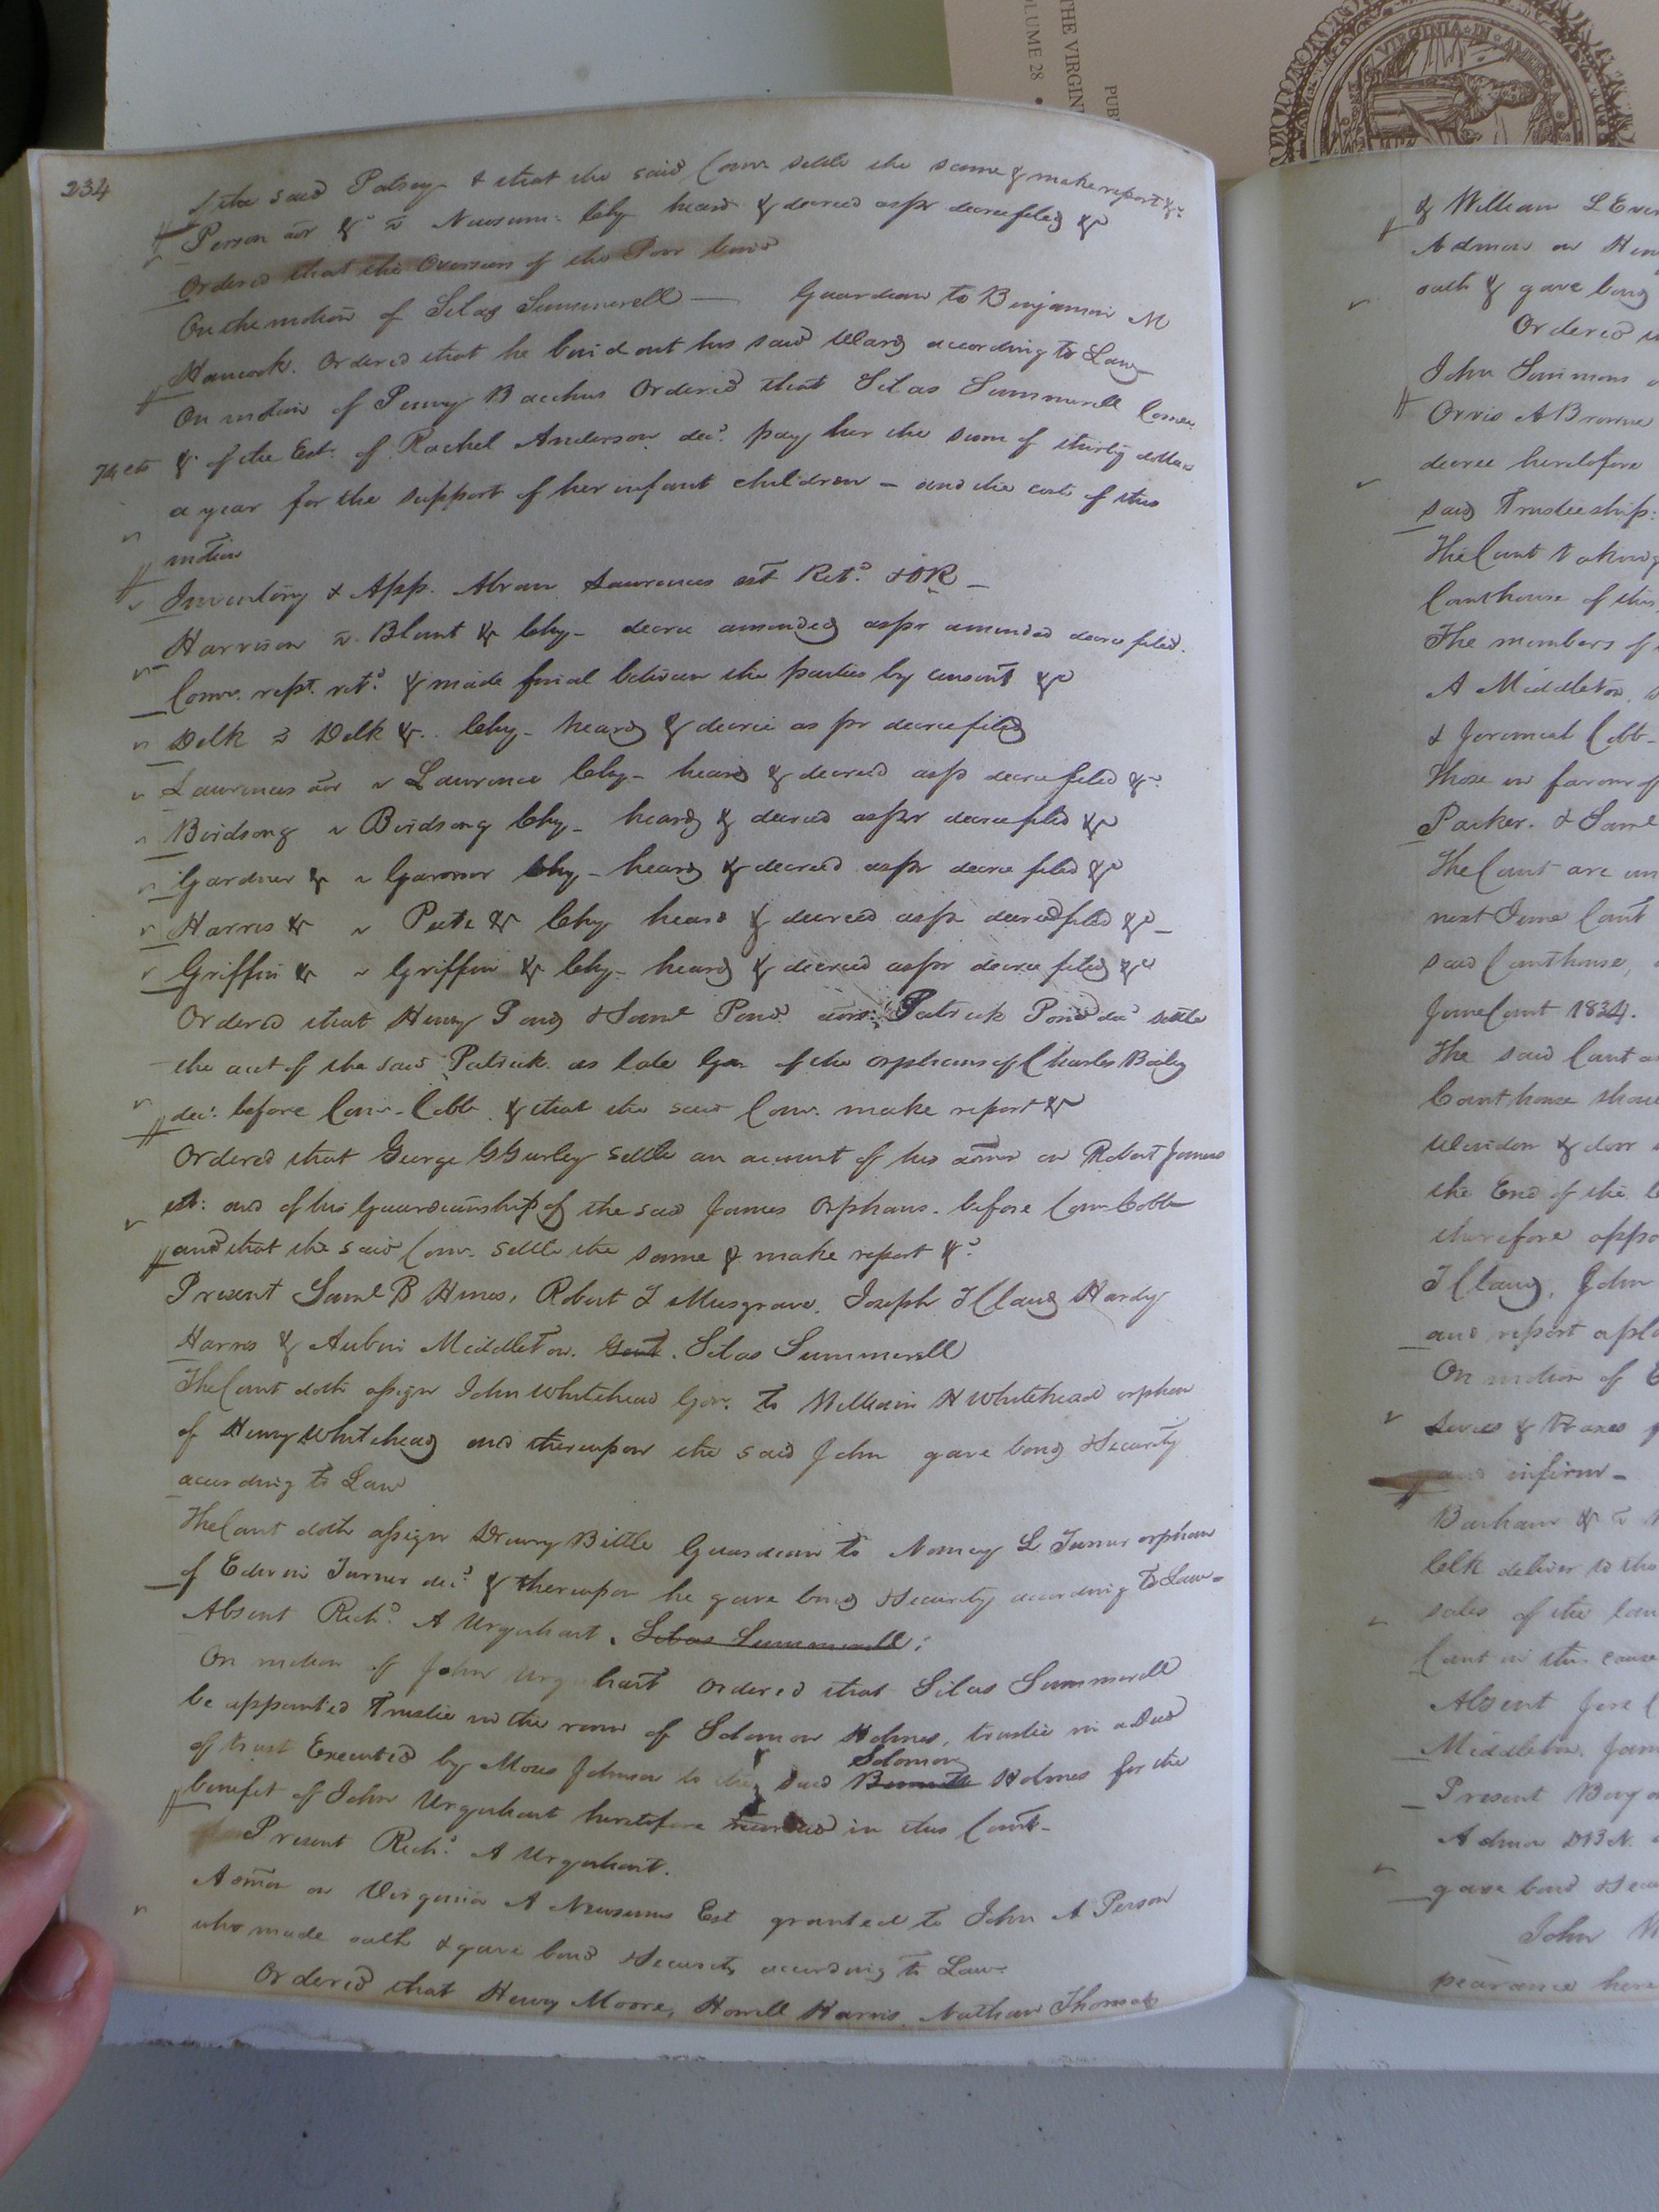 PUB
THE VIRGIN
OLUME 28 •
VIRGINIA · IN
234
of the said Patsey & that the said Comr. settle the same & make report &c
Person adr &c vs Newsum. Chy heard & decreed as pr decree filed &c
Ordered that the Overseers of the Poor bind
On the motion of Silas Summerell — Guardian to Benjamin M
Hancock. Ordered that he bind out his said Ward according to Law
On motion of Penny Bacchus Ordered that Silas Summerell
74 cts & of the Est. of Rachel Anderson decd. pay her the sum of thirty dollars
a year for the support of her infant children – and the costs of this
motion
Inventory & App. Abram Lawrences est Retd. & OR –
Harrison vs Blunt &c Chy – decree amended as pr amended decree filed.
Comrs. rept. retd. & made final between the parties by consent &c
Delk vs Delk &c. Chy – heard & decree as pr decree filed
Lawrences adr v Lawrence Chy – heard & decreed as pr decree filed &c
Birdsong v Birdsong Chy – heard & decreed as pr decree filed &c
Gardner &c v Gardner Chy – heard & decreed as pr decree filed &c
Harris &c v Pete &c Chy heard & decreed as pr decree filed &c –
Griffin &c v Griffin &c Chy – heard & decreed as pr decree filed &c
Ordered that Henry Pond & Saml Pond adrs: Patrick Pond decd settle
the acct of the said Patrick as late Gdn of the orphans of Charles Baily
decd. before Comr. Cobb & that the said Comr. make report &c
Ordered that George G Gurley settle an account of his admn on Robert James
est: and of his Guardianship of the said James Orphans. before Comr Cobb
and that the said Comr. settle the same & make report &c
Present Saml B Hines, Robert T Musgrave, Joseph T Claud Hardy
Harris & Aubin Middleton. Gent. Silas Summerell
The Court doth assign John Whitehead Gdn. to William H Whitehead orphan
of Henry Whitehead and thereupon the said John gave bond & Security
according to Law
The Court doth assign Drewry Bittle Guardian to Nancy L Turner orphan
of Edwin Turner decd & thereupon he gave bond & Security according to Law –
Absent Richd. A Urquhart, Silas Summerell;
On motion of John Urquhart Ordered that Silas Summerell
be appointed Trustee in the room of Solomon Holmes, trustee in a Deed
of trust Executed by Moses Johnson to the said Solomon Holmes for the
benefit of John Urquhart heretofore in this Court –
Present Richd. A Urquhart.
Admon on Virginia A Newsums Est granted to John A Person
who made oath & gave bond & Security according to Law.
Ordered that Henry Moore, Howell Harris, Nathan Thomas
& William L Ever
Admon on Hen
oath & gave bond
Ordered
John Simmons
Orris A Browne
decree heretofore
said Trusteeship:
The Court taking
Courthouse of this
The members of
A Middleton,
& Jeremiah Cobb –
those in favour of
Parker. & Saml
The Court are
next June Court
said Courthouse,
June Court 1834.
The said Court
Courthouse
Window & door
the End of the
therefore appo
T Claud, John
and report
On motion of
Levies & Taxes
and infirm –
Barham & vs
Clk deliver to the
sales of the lan
Court in this cause
Absent Jere C
Middleton. Jam
Present Benj
Admon DBN.
gave bond & Secu
John
pearance here